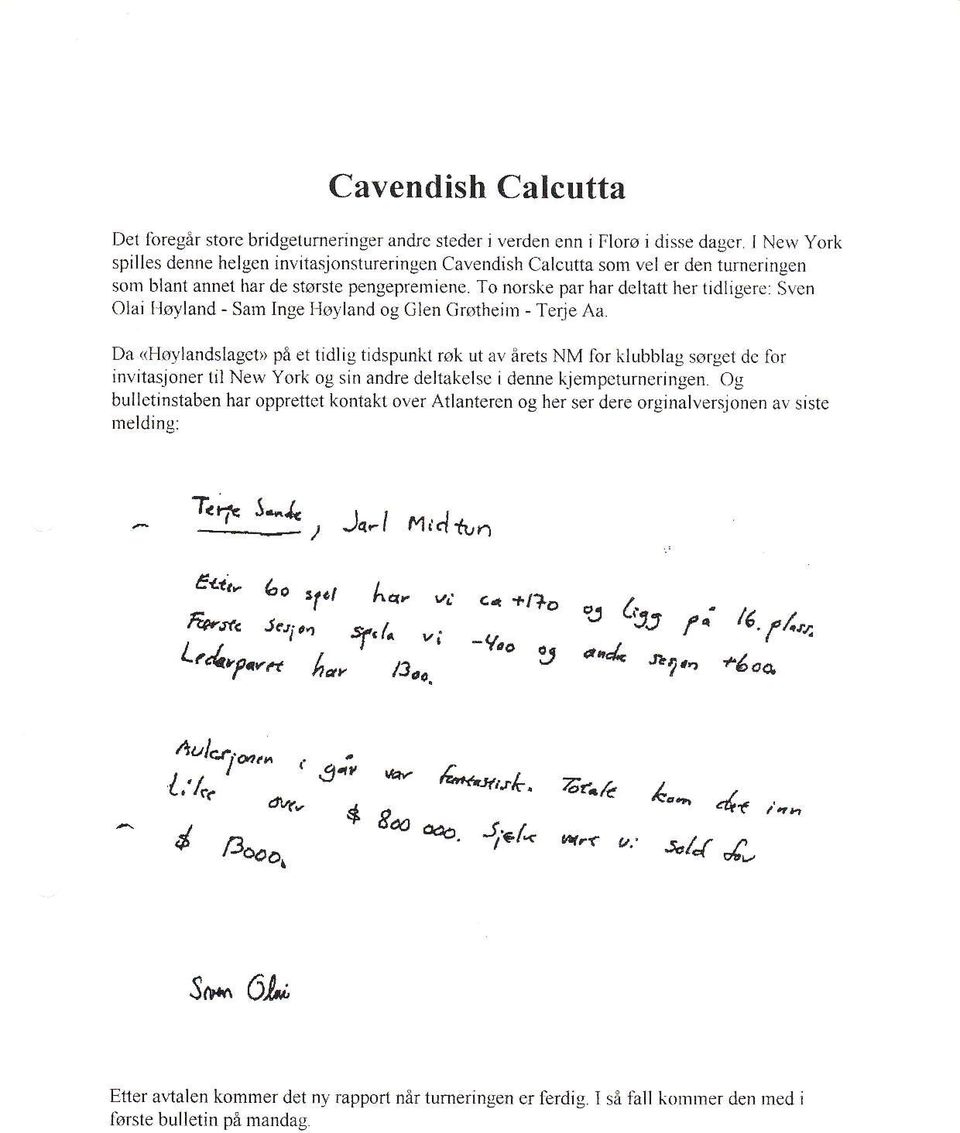 Cavendish Calcutta
Det foregår store bridgeturneringer andre steder i verden enn i Florø i disse dager. I New York
spilles denne helgen invitasjonstureringen Cavendish Calcutta som vel er den turneringen
som blant annet har de største pengepremiene. To norske par har deltatt her tidligere: Sven
Olai Høyland - Sam Inge Høyland og Glen Grøtheim - Terje Aa.
Da «Høylandslaget» på et tidlig tidspunkt røk ut av årets NM for klubblag sørget de for
invitasjoner til New York og sin andre deltakelse i denne kjempeturneringen. Og
bulletinstaben har opprettet kontakt over Atlanteren og her ser dere orginalversjonen av siste
melding:
Terje Sande, Jarl Midtun
Etter 60 spel har vi ca +170 og ligg på 16. plass.
Første sesjon spela vi -400 og andre sesjon +600.
Ledarparet har 1300.
Auksjonen i går var fantastisk. Totale kom det inn
litke over $ 800 000. Sjølv vart vi sold for
$ 13000.
Sven Olai
Etter avtalen kommer det ny rapport når turneringen er ferdig. I så fall kommer den med i
første bulletin på mandag.